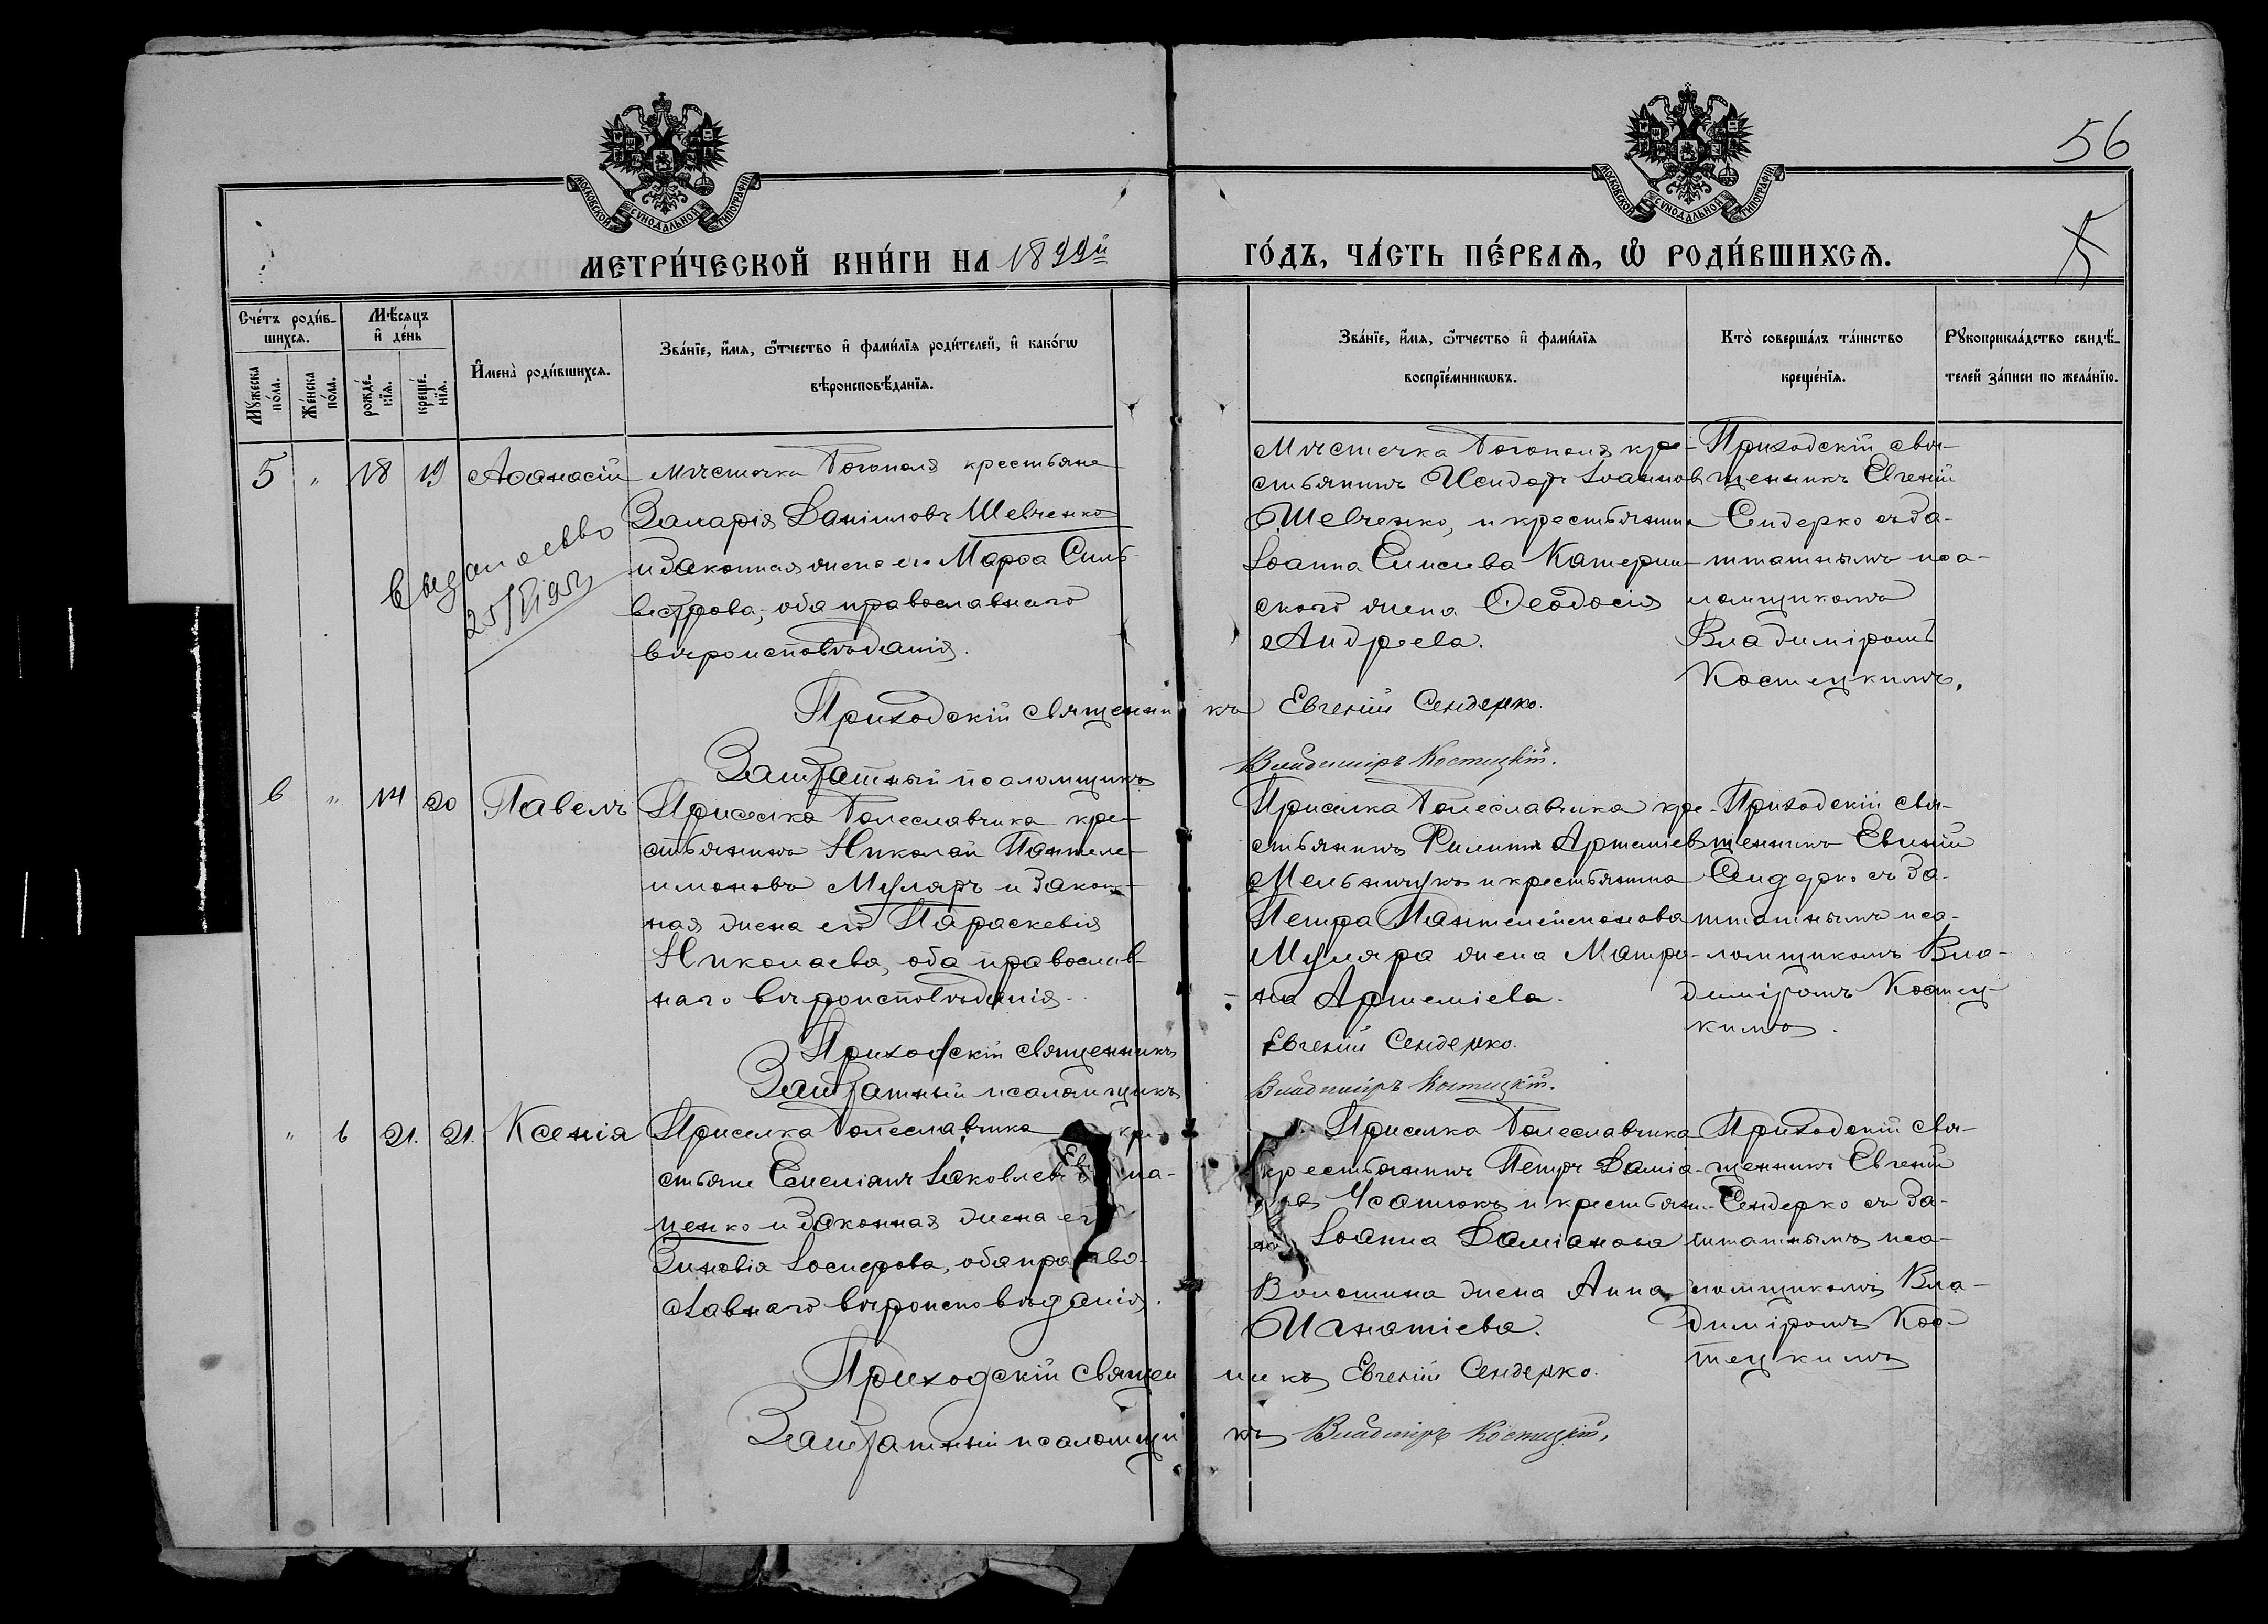 56
МОСКОВСКОЙ СУНОДАЛЬНОЙ ТИПОГРАФІИ
МОСКОВСКОЙ СУНОДАЛЬНОЙ ТИПОГРАФІИ
МЕТРИ́ЧЕСКОЙ КНИ́ГИ НА 1899й
ГО́ДЪ, ЧА́СТЬ ПЕ́РВАѦ, Ѡ РОДИ́ВШИХСѦ.
5
Сче́тъ роди́в-
шихсѧ.
Мꙋ́жеска
по́ла.
Же́нска
по́ла.
Мѣ́сѧцъ
и҆ де́нь
рожде́-
нїѧ.
креще́-
нїѧ.
И҆мена̀ роди́вшихсѧ.
Зва́нїе, и҆́мѧ, ѻ҆́тчество и҆ фами́лїѧ роди́телей, и҆ како́гѡ
вѣроисповѣ́данїѧ.
Зва́нїе, и҆́мѧ, ѻ҆́тчество и҆ фами́лїѧ
воспрїе́мникѡвъ.
Кто̀ соверша́лъ та́инство
креще́нїѧ.
Рꙋкоприкла́дство свидѣ́-
телей за́писи по жела́нїю.
5 " 18 19 Аѳанасій
мѣстечка Богополя крестьяне
Захарія Даніиловъ Шевченко
и законная жена его Марѳа Силь-
вестрова, оба православнаго
вѣроисповѣданія.
Выдано свво
25/VI 1952
Мѣстечка Богополя кре-
стьянинъ Исидоръ Іоаннов
Шевченко, и крестьянина
Іоанна Елисеева Катерин-
скаго жена Ѳеодосія
Андреева.
Приходскій свя-
щенникъ Евгеній
Сендерко съ за-
штатнымъ пса-
ломщикомъ
Владиміромъ
Костецкимъ.
Приходскій священникъ Евгеній Сендерко.
Заштатный псаломщикъ Владиміръ Костецкій.
6 " 14 20 Павелъ
Приселка Болеславчика кре-
стьянинъ Николай Пантеле-
имоновъ Муляръ и закон-
ная жена его Параскевія
Николаева, оба православ-
наго вѣроисповѣданія.
Приселка Болеславчика кре-
стьянинъ Филиппъ Артеміев
Мельничукъ и крестьянина
Петра Пантелеимонова
Муляра жена Матро-
на Артеміева.
Приходскій свя-
щенникъ Евгеній
Сендерко съ за-
штатнымъ пса-
ломщикомъ Вла-
диміромъ Костец-
кимъ.
Приходскій священникъ Евгеній Сендерко.
Заштатный псаломщикъ Владиміръ Костецкій.
" 6 21. 21. Ксенія
Приселка Болеславчика кре-
стьяне Емеліанъ Іаковлевъ
ненко и законная жена его
Зиновія Іосифова, оба право-
славнаго вѣроисповѣданія.
Приселка Болеславчика
крестьянинъ Петръ Даміа-
новъ Усатюкъ и крестьяни-
на Іоанна Даміанова
Волошина жена Анна
Игнатіева.
Приходскій свя-
щенникъ Евгеній
Сендерко съ за-
штатнымъ пса-
ломщикомъ Вла-
диміромъ Кос-
тецкимъ
Приходскій священникъ Евгеній Сендерко.
Заштатный псаломщикъ Владиміръ Костецкій.